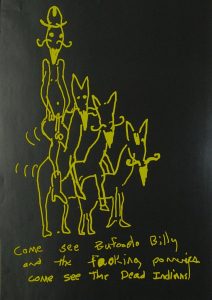 Come see Bufoalo Billy
and the fucking ponnies
come see The Dead Indians!